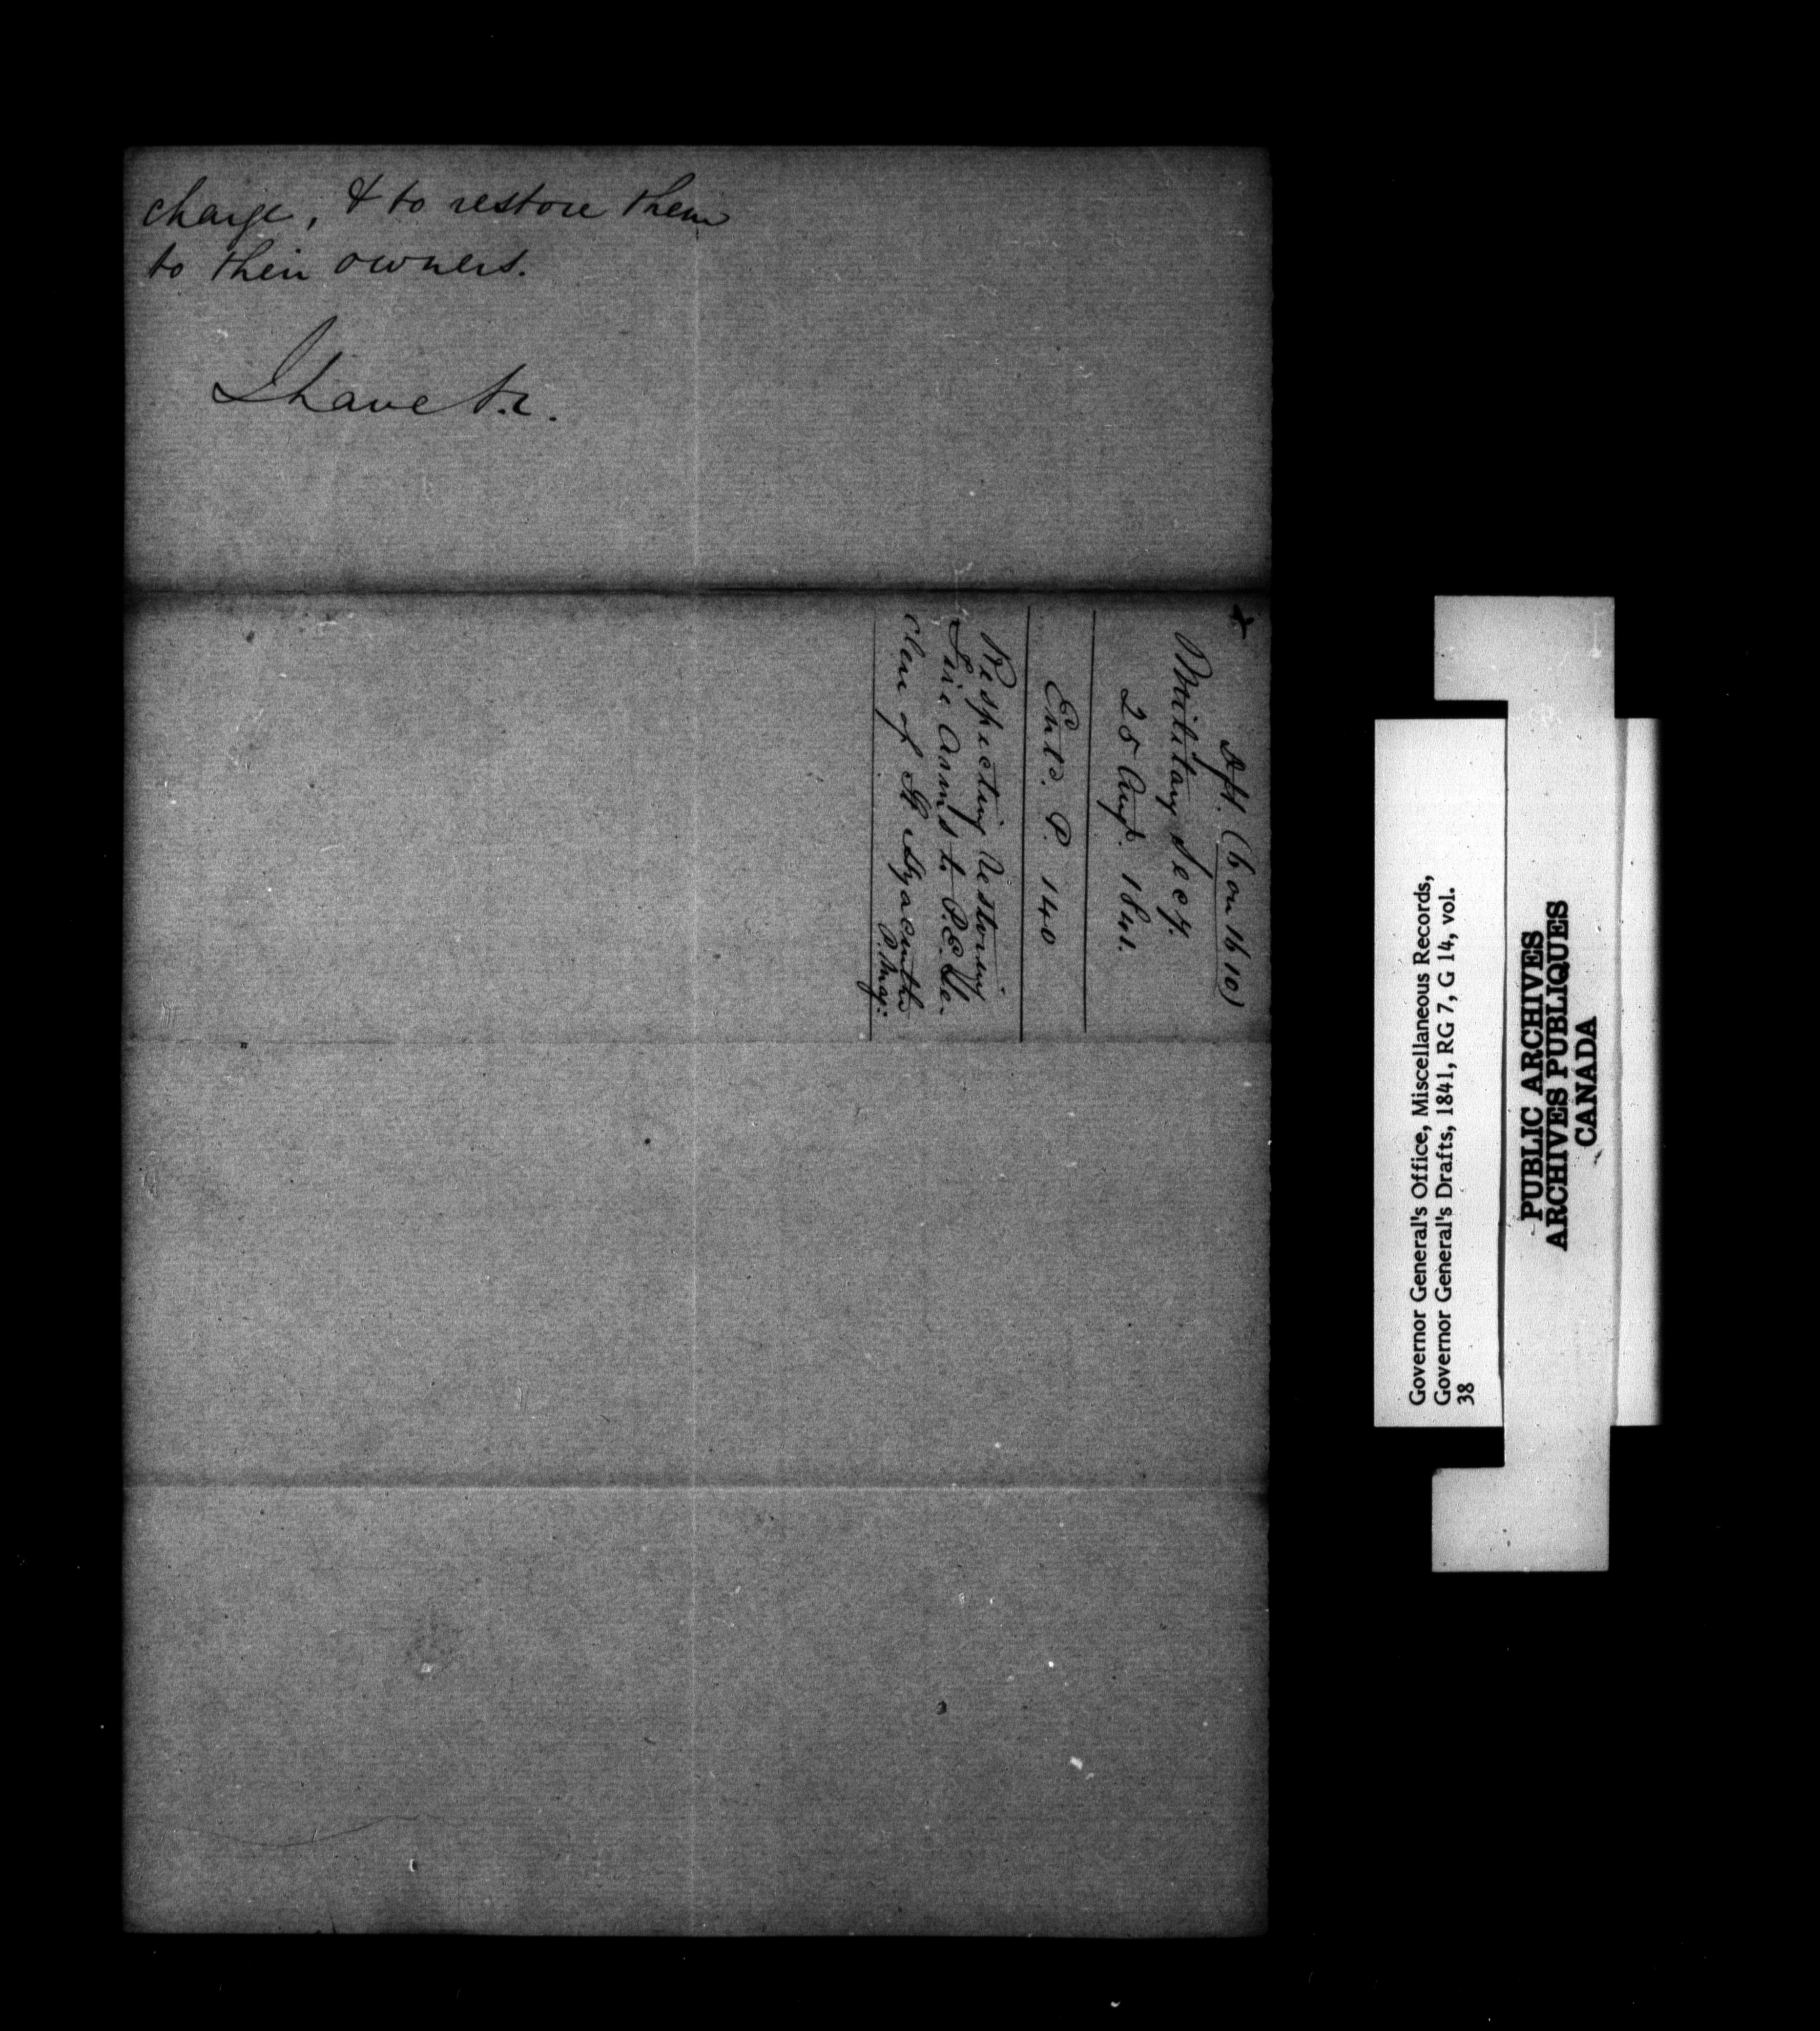 charge, & to restore them
to their owners.
I have &c.
Dft. (6 on 16 10)
Military Secy.
25 Augt. 1841.
Entd. P. 140
Respecting restoring
Fire Arms to P.E. Le-
clere of St Hyacinthe
P. Mag:
Governor General's Office, Miscellaneous Records,
Governor General's Drafts, 1841, RG 7, G 14, vol.
38
PUBLIC ARCHIVES
ARCHIVES PUBLIQUES
CANADA